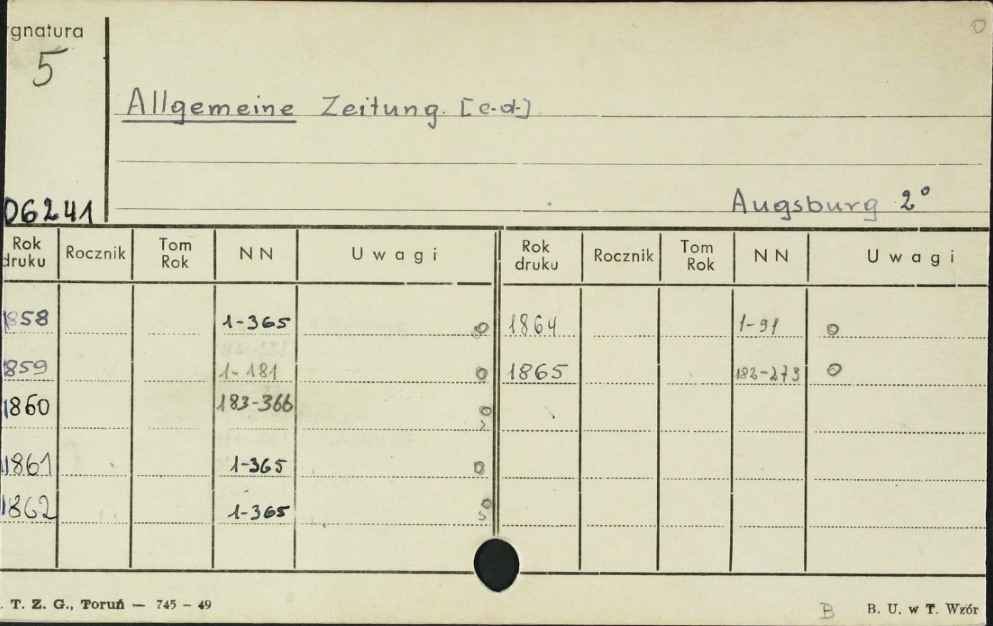 gnatura
5
Allgemeine Zeitung. [c.d.]
06241
Augsburg 2°
Rok druku Rocznik Tom Rok NN Uwagi Rok druku Rocznik Tom Rok NN Uwagi
1858 1-365 o 1864 1-91 o
1859 1-181 o 1865 182-273 o
1860 183-366 o
1861 1-365 o
1862 1-365 o
. T. Z. G., Toruń — 745 – 49
B B. U. w T. Wzór